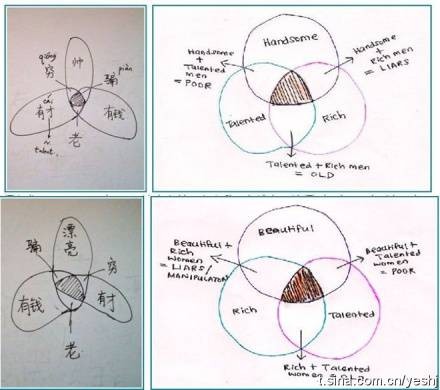 qióng
穷
帅
骗
piàn
cái
有才
有钱
talent.
老
Handsome
Handsome
+
Talented
men
= POOR
Handsome
+
Rich men
= LIARS
Talented
Rich
Talented + Rich men
= OLD
漂
亮
骗
穷
有钱
有才
老
Beautiful
Beautiful +
Rich
Women
= LIARS/
MANIPULATOR
Beautiful
+ Talented
women
= POOR
Rich
Talented
Rich + Talented
women = OLD
t.sina.com.cn/yeshi